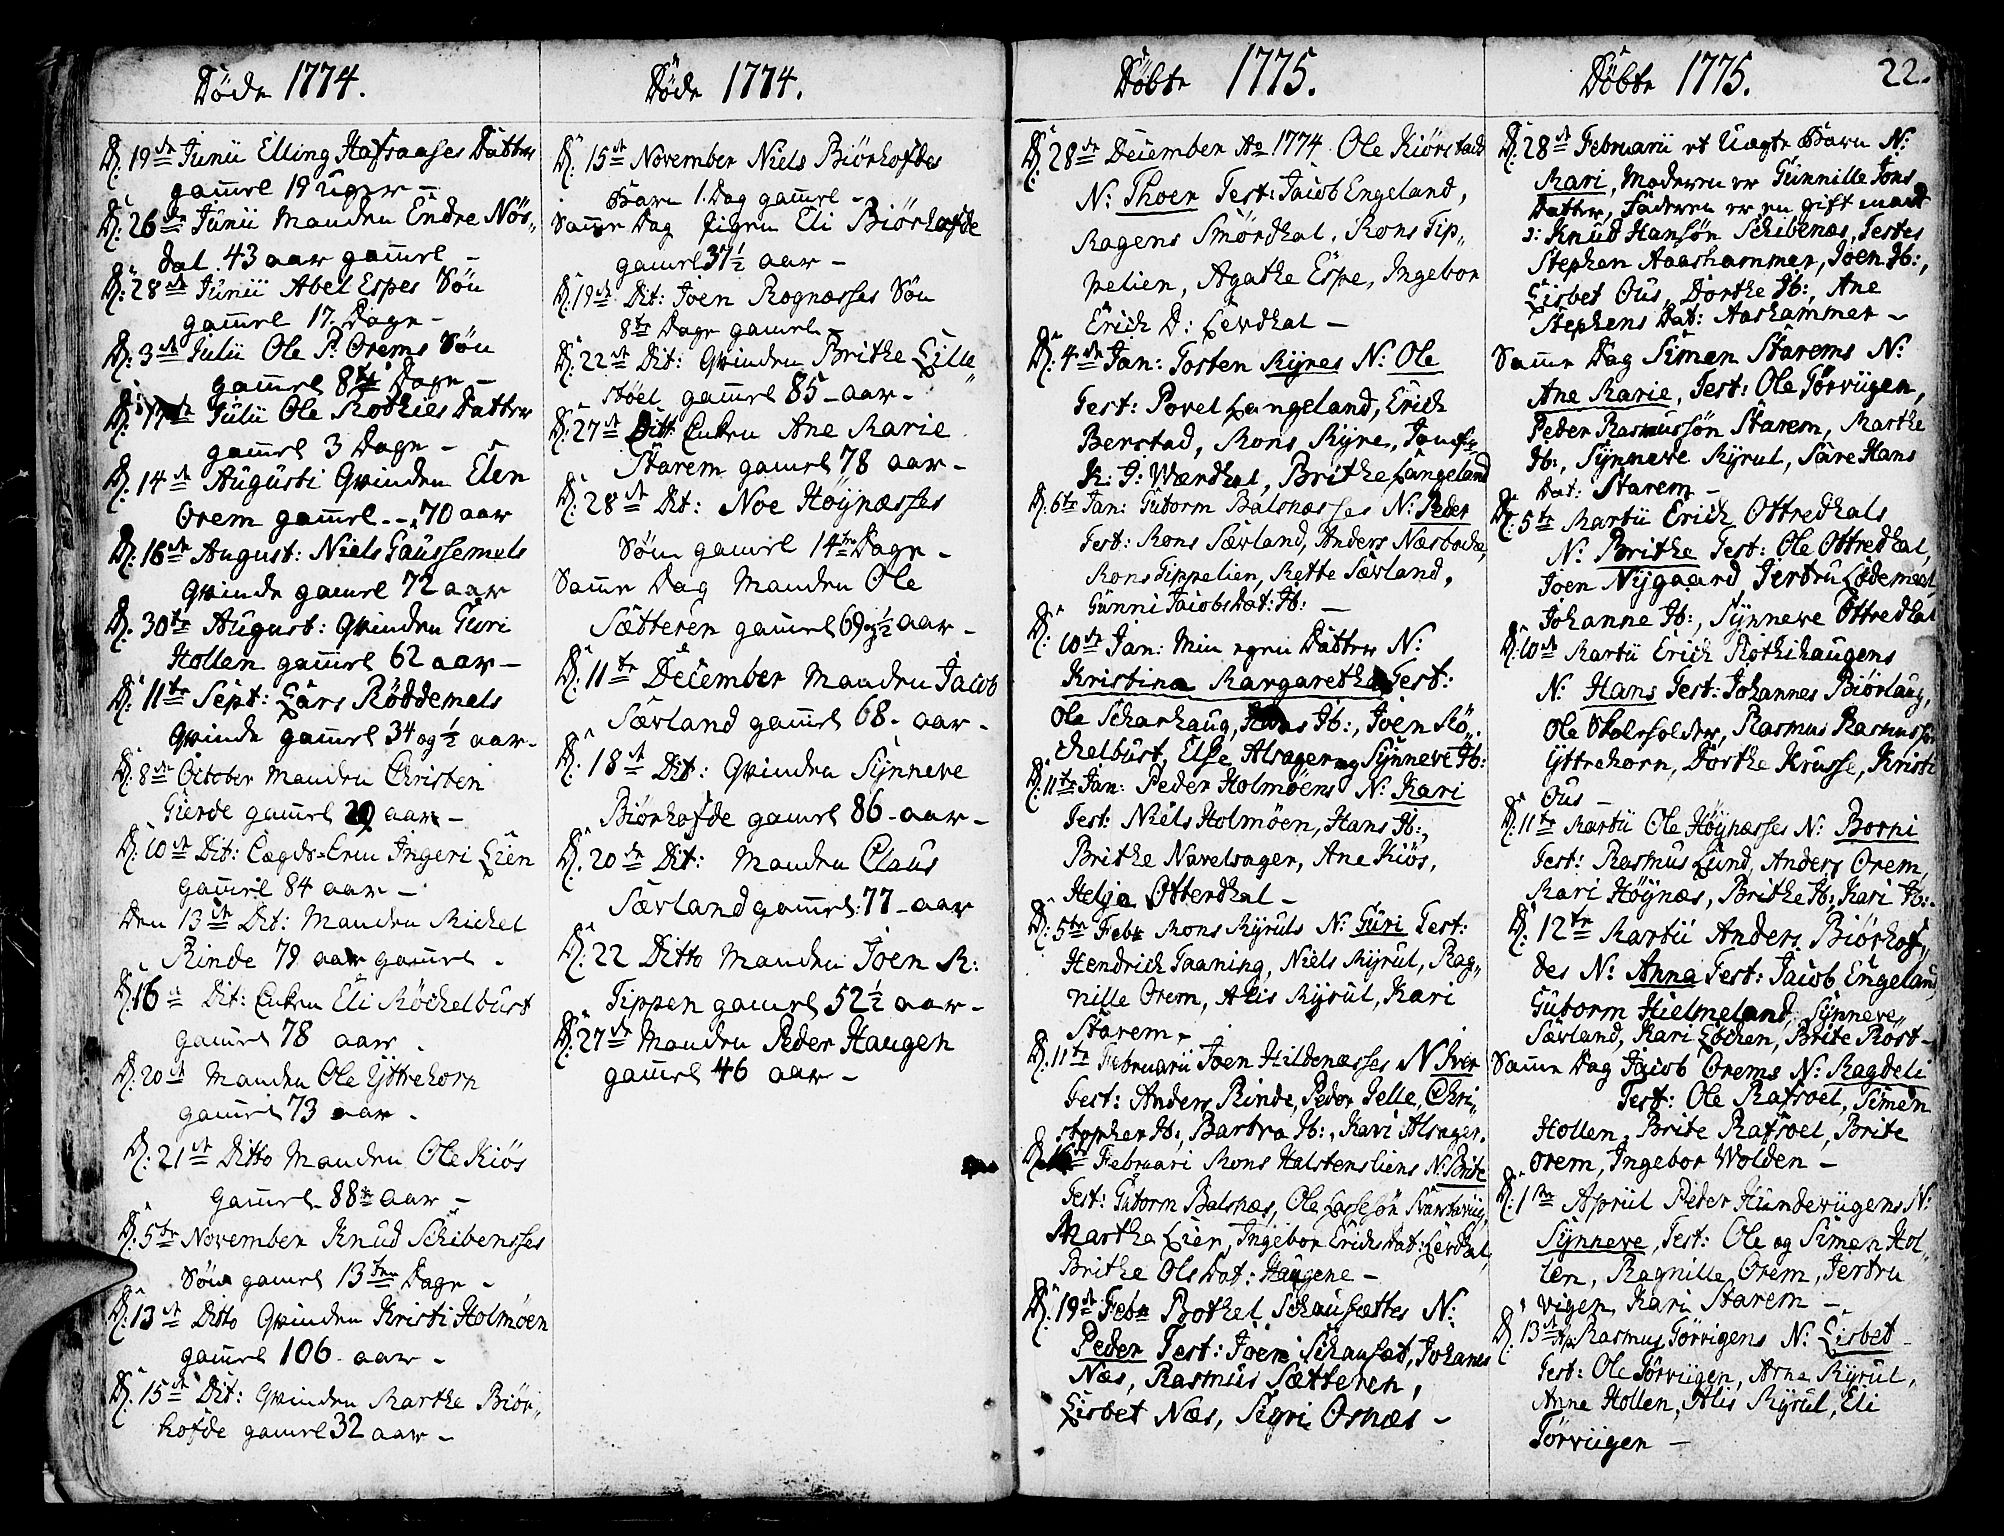 Døde 1774.
D: 19de Junii Elling Hafsaases Datter
gamel 19 Uger –
D: 26de Junii Manden Endre Nös„
dal 43 aar gamel –
D: 28de Junii Abel Espes Søn
gamel 17. Dage –
D: 3de Julii Ole P: Orems Søn
gamel 8te Dage –
Julii Ole Rotkies Datter
gamel 3 Dage –
D: 14de Augusti Qvinden Elen
Orem gamel 70 aar
D: 16de August: Niels Gaussemels
Qvinde gamel 72 aar
D: 30te August: Qvinden Guri
Hollen gamel 62 aar –
D: 11te Sept: Lars Röddemels
Qvinde gamel 34 og ½ aar –
D: 8de October Manden Christen
Gierde gamel 29 aar –
D: 10de Dit: Lægds-Lem Ingeri Lien
gamel 84 aar –
Den 13de Dit: Manden Mickel
Rinde 79 aar gamel –
D: 16de Dit: Enken Eli Röckelbust
gamel 78 aar.
D: 20de Manden Ole Yttrehorn
gamel 73 aar.
D: 21de Ditto Manden Ole Kiös
gamel 88te aar –
D: 5te November Knud Schibensses
Søn gamel 13ten Dage –
D: 13de Ditto Qvinden Kristi Holmøen
gamel 106 aar –
D: 15de Dit: Qvinden Marthe Biör„
hofde gamel 32 aar –
Døde 1774.
D: 15de November Niels Biörhofdes
Barn 1. Dag gamel –
Samme Dag Pigen Eli Biörhofde
gamel 37½ aar –
D: 19de Dit: Joen Rognæsses Søn
8te Dage gamel –
D: 22de Dit: Qvinden Brithe Lille„
støel gamel 85 – aar –
D: 27de Dit: Enken Ane Marie
Starem gamel 78 aar –
D: 28de Dit: Noe Höÿnæsses
Søn gamel 14ten Dage –
Samme Dag Manden Ole
Sætteren gamel 69 og ½ aar –
D: 11te December Manden Jacob
Sævland gamel 68 – aar –
D: 18de Dit: Qvinden Sÿnneve
Biörhofde gamel 86 – aar –
D: 20de Dit: Manden Claus
Sævland gamel: 77 – aar
D: 22 Ditto Manden Joen M:
Tippen gamel 52½ aar –
D: 27de Manden Peder Haugen
gamel 46 aar –
Döbte 1775.
D: 28de December Ao 1774 Ole Kiörstad
N: Thoer Test: Jacob Engeland,
Magens Smördhal, Mons Tip„
pelien, Agathe Espe, Ingebor
Erich D: Lerdhal –
D: 4de Jan: Tosten Myres N: Ole
Test: Povel Langeland, Erich
Berstad, Mons Myre, Jomf:
K: J: Wærdhal, Brithe Langeland
D: 6te Jan: Gutorm Balsnæsses N: Peder
Test: Mons Sævland, Anders Næsbacke,
Mons Tippelien, Mette Sævland,
Gunni Jacobs Dat: Ib: –
D: 10de Jan: Min egen Datter N:
Kristina Margaretha Test:
Ole Scharhaug, Hans Ib:, Joen Rö„
chelbust, Else Alsager og Sÿnneve Ib:
D: 11te Jan: Peder Holmøens N: Kari
Test: Niels Holmøen, Hans Ib:,
Brithe Navelsager, Ane Kiös,
Helga Otterdhal –
D: 5te Febr Mons Mÿruls N: Guri Test:
Hendrich Taaning, Niels Mÿrul, Rag„
nille Orem, Alis Mÿrul, Kari
Starem –
D: 11te Februarii Joen Hildenæsses N Iver
Test: Anders Rinde, Peder Jelle, Chri„
stopher Ib:, Bartra Ib:, Kari Alsager.
Februari Mons Halstensliens N: Brite
Test: Gutorm Balsnæs, Ole Lassesøn Svartevig,
Martha Lien, Ingebor Erichs Dat: Lerdhal,
Brithe Ols Dat: Haugene –
D: 19de Febr Bothel Schausættes N:
Peder Test: Joen Schausæt, Johanes
Næs, Rasmus Sætteren,
Lisbet Næs, Sigri Osnæs –
Döbte 1775.
22.
D: 28de Februarii et Uægte Barn N:
Mari, Moderen er Gunnille Jons
Datter, Faderen er en gift mand
: Knud Hansøn Schibenæs, Testes
Stephen Aaashammer, Joen Ib:,
Lisbet Ous, Dorthe Ib:, Ane
Stephens Dat: Aashammer –
Samme Dag Simen Starems N:
Ane Marie, Test: Ole Törvügen,
Peder Rasmussøn Starem, Marthe
Ib:, Sÿnneve Mÿrul, Sare Hans
Dat: Starem –
D: 5te Martii Erich Ottredhals
N: Brithe Test: Ole Ottredhal,
Joen Nÿgaard Jertru Lödemeel,
Johanne Ib:, Sÿnneve Ottredhal
D: 10de Martii Erich Rothihaugens
N: Hans Test: Johannes Biörlaug,
Ole Skolefolder, Rasmus Rasmussön
Yttrehorn, Dorthe Krusse, Kristi
Ous –
D: 11te Martii Ole Höÿnæsses N: Borni
Test: Rasmus Lund, Anders Orem,
Mari Höÿnæs, Brithe Ib: Kari Ib: –
D: 12te Martii Anders Biörhof„
des N: Anna Test: Jacob Engeland,
Gutorm Hielmeland, Sÿnneve
Sævland, Kari Löchen, Brite Röst –
Samme Dag Jacob Orems N: Magdeli
Test: Ole Rafsoel, Simen
Hollen, Brite Rafsoel, Brite
Orem, Ingebor Wolden –
D: 1ste April Peder Hundevügens N:
Sÿnneve, Test: Ole og Simen Hol„
len, Ragnille Orem, Jertru
vigen, Kari Starem –
D: 13de Ap Rasmus Törvigens N: Lisbet
Test: Ole Törvügen, Arne Mÿrul,
Anne Hollen, Alis Mÿrul, Eli
Törvügen –